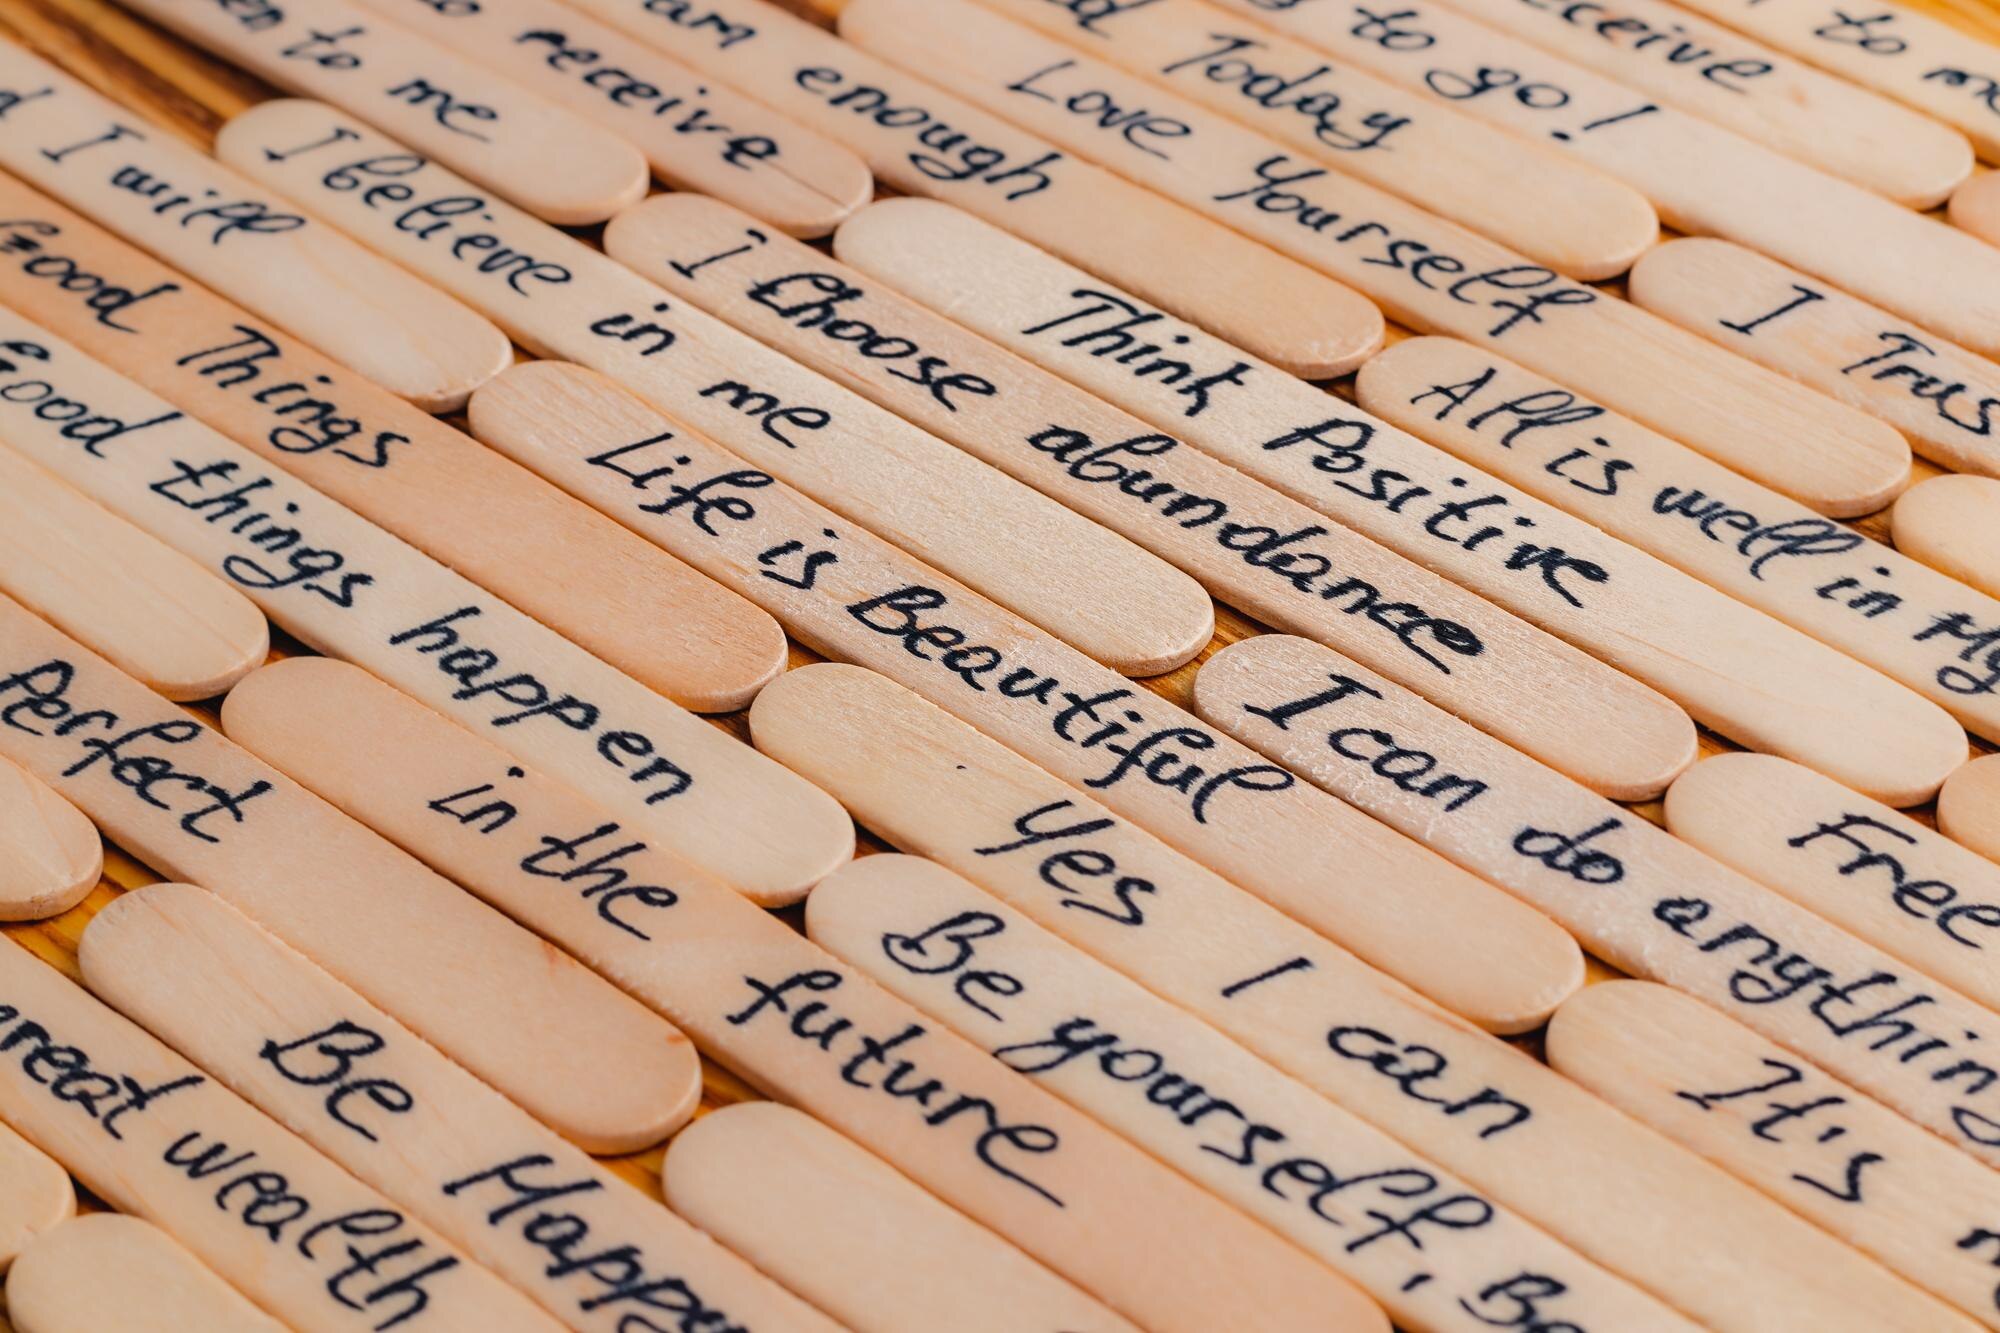 to me
to receive
am enough
Today
to go!
to
Love Yourself
I will
I believe in me
I choose abundance
Think Positive
All is well in My
I Trus
Good Things
Good things happen
Life is Beautiful
I can do anything
Free
Perfect
in the future
Yes I can
Be yourself, Be
It's
Be Happy
great wealth